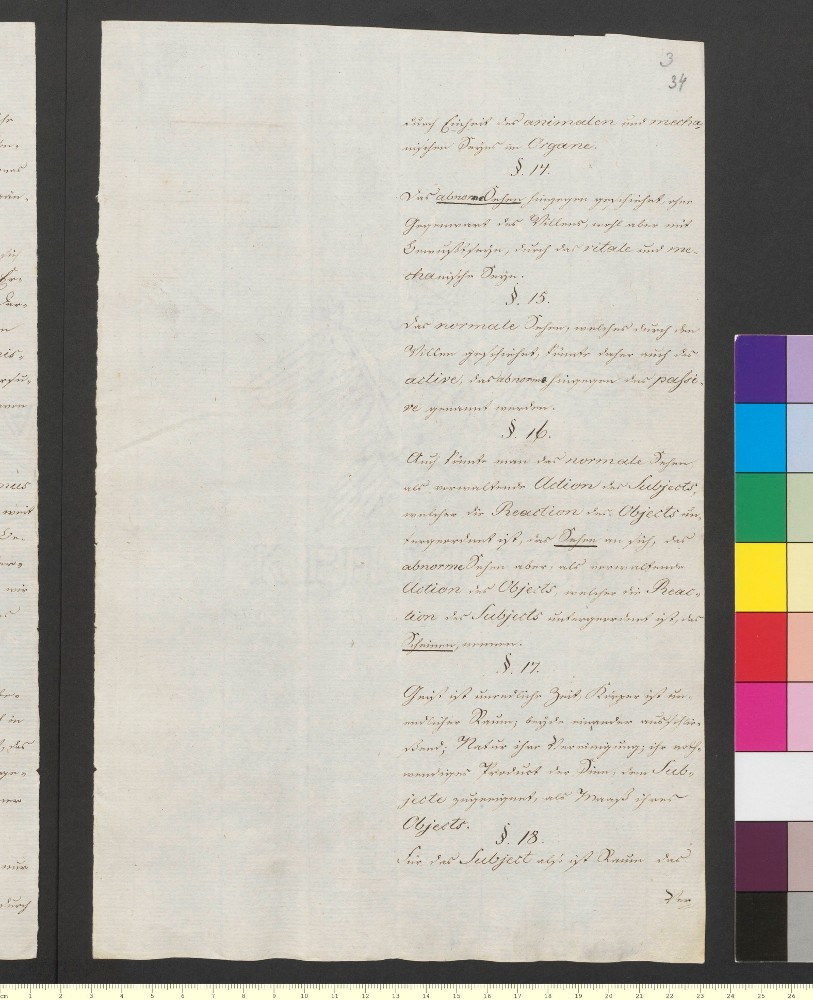 3
34
durch Einheit des animalen und mecha-
nischen Seyns im Organe.
§. 14.
Das abnorme Sehen hingegen geschiehet ohne
Gegenwart des Willens, wohl aber mit
Bewußtseyn, durch das vitale und me-
chanische Seyn.
§. 15.
Das normale Sehen, welches durch den
Willen geschiehet, könnte daher auch das
active, das abnorme hingegen das passi-
ve genannt werden.
§. 16.
Auch könnte man das normale Sehen
als vorwaltende Action des Subjects,
welcher die Reaction des Objects un-
tergeordnet ist, das Sehen an sich, das
abnorme Sehen aber als vorwaltende
Action des Objects, welcher die Reac-
tion des Subjects untergeordnet ist, das
Scheinen, nennen.
§. 17.
Geist ist unendliche Zeit, Körper ist un-
endlicher Raum; beyde einander ausschlie-
ßend; Natur ihre Vereinigung; ihr noth-
wendiges Product der Sinn, dem Sub-
jecte zugeeignet, als Maaß ihres
Objects.
§. 18.
Für das Subject also ist Raum das
Ver